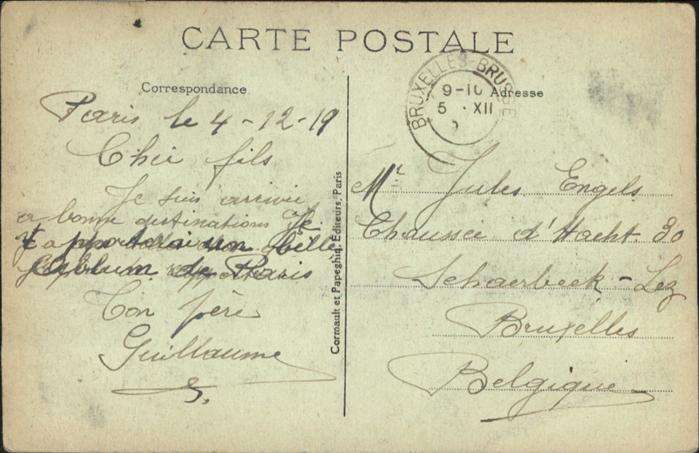 CARTE POSTALE
Correspondance
Paris le 4-12-19
Cher fils
Je suis arrivée
a bonne destinations Je
t'apporterai un belle
album de Paris
Ton père
Guillaume
Cormault et Papeghin, Editeurs, Paris
BRUXELLES-BRUSSEL
9-10
5 XII
Adresse
Mr Jules Engels
Chaussée d'Haecht 30
Schaerbeek-Lez
Bruxelles
Belgique